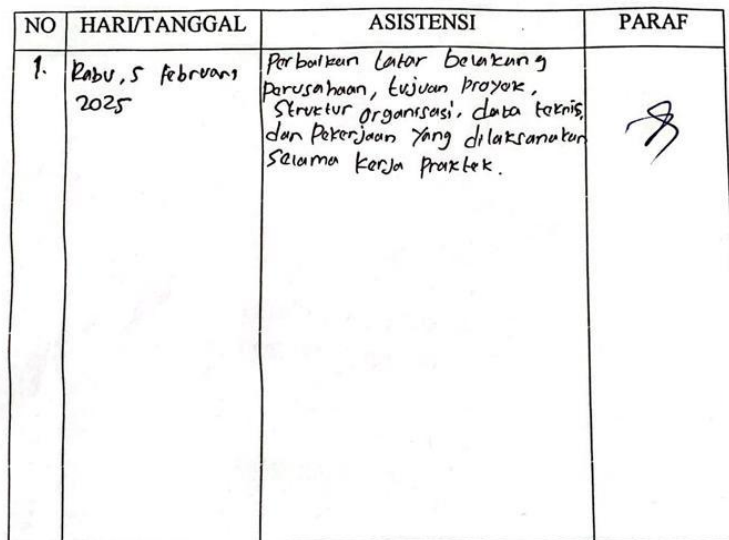 NO HARI/TANGGAL ASISTENSI PARAF
1. Rabu, 5 Februari 2025
Perbaikan latar belakang
perusahaan, tujuan proyek,
Struktur organisasi, data teknis,
dan Pekerjaan Yang dilaksanakan
selama kerja praktek.